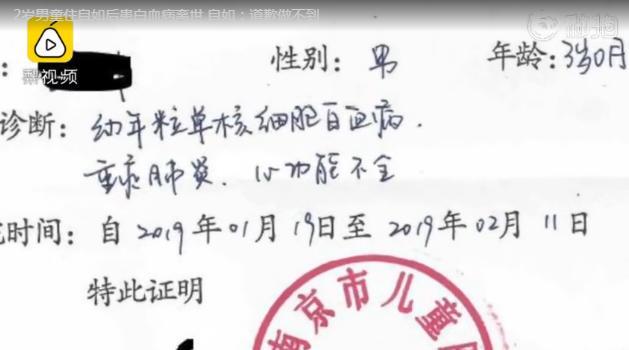 2岁男童住自如后患白血病离世 自如：道歉做不到
梨视频
：
性别：男
年龄：3岁0月
诊断：幼年粒单核细胞白血病.
重症肺炎. 心功能不全
时间：自 2019 年 01 月 19 日至 2019 年 02 月 11 日
特此证明
南京市儿童